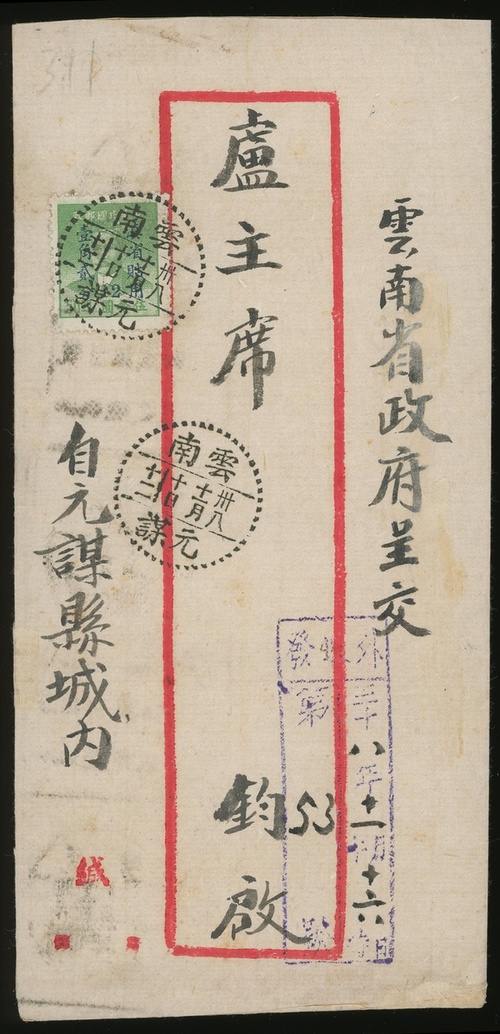 雲南省政府呈交
盧主席
鈞啟
自元謀縣城內
緘
雲南
卅八
十一月
十日
十二
元謀
雲南
卅八
元謀
外收發
三十八年十一月十六日
第53號
311